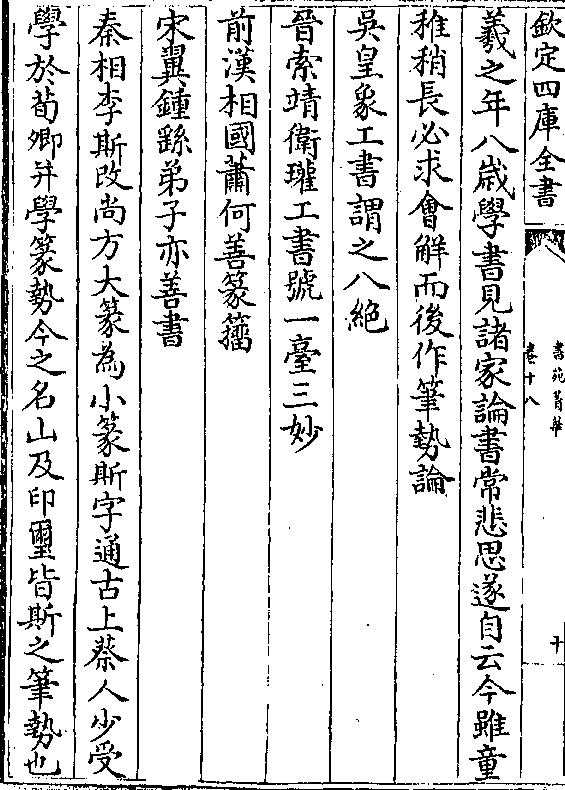 欽定四庫全書
書苑菁華
卷十八
十
羲之年八歲學書見諸家論書常悲思遂自云今雖童
稚稍長必求會解而後作筆勢論
吳皇象工書謂之八絶
晉索靖衛瓘工書號一臺三妙
前漢相國蕭何善篆籕
宋翼鍾繇弟子亦善書
秦相李斯改尚方大篆為小篆斯字通古上蔡人少受
學於荀卿并學篆勢今之名山及印璽皆斯之筆勢也